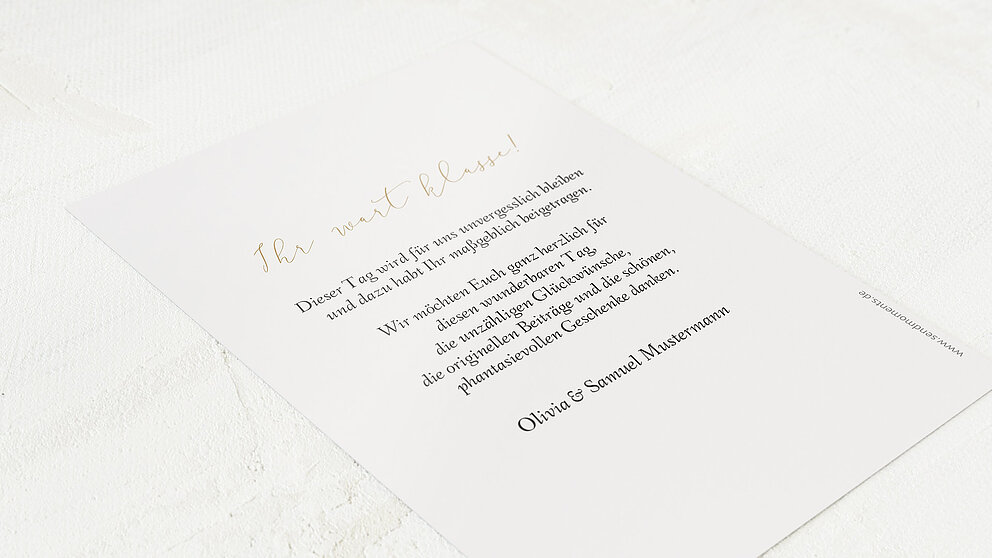 Ihr wart klasse!
Dieser Tag wird für uns unvergesslich bleiben
und dazu habt Ihr maßgeblich beigetragen.
Wir möchten Euch ganz herzlich für
diesen wunderbaren Tag,
die unzähligen Glückwünsche,
die originellen Beiträge und die schönen,
phantasievollen Geschenke danken.
Olivia & Samuel Mustermann
www.sendmoments.de